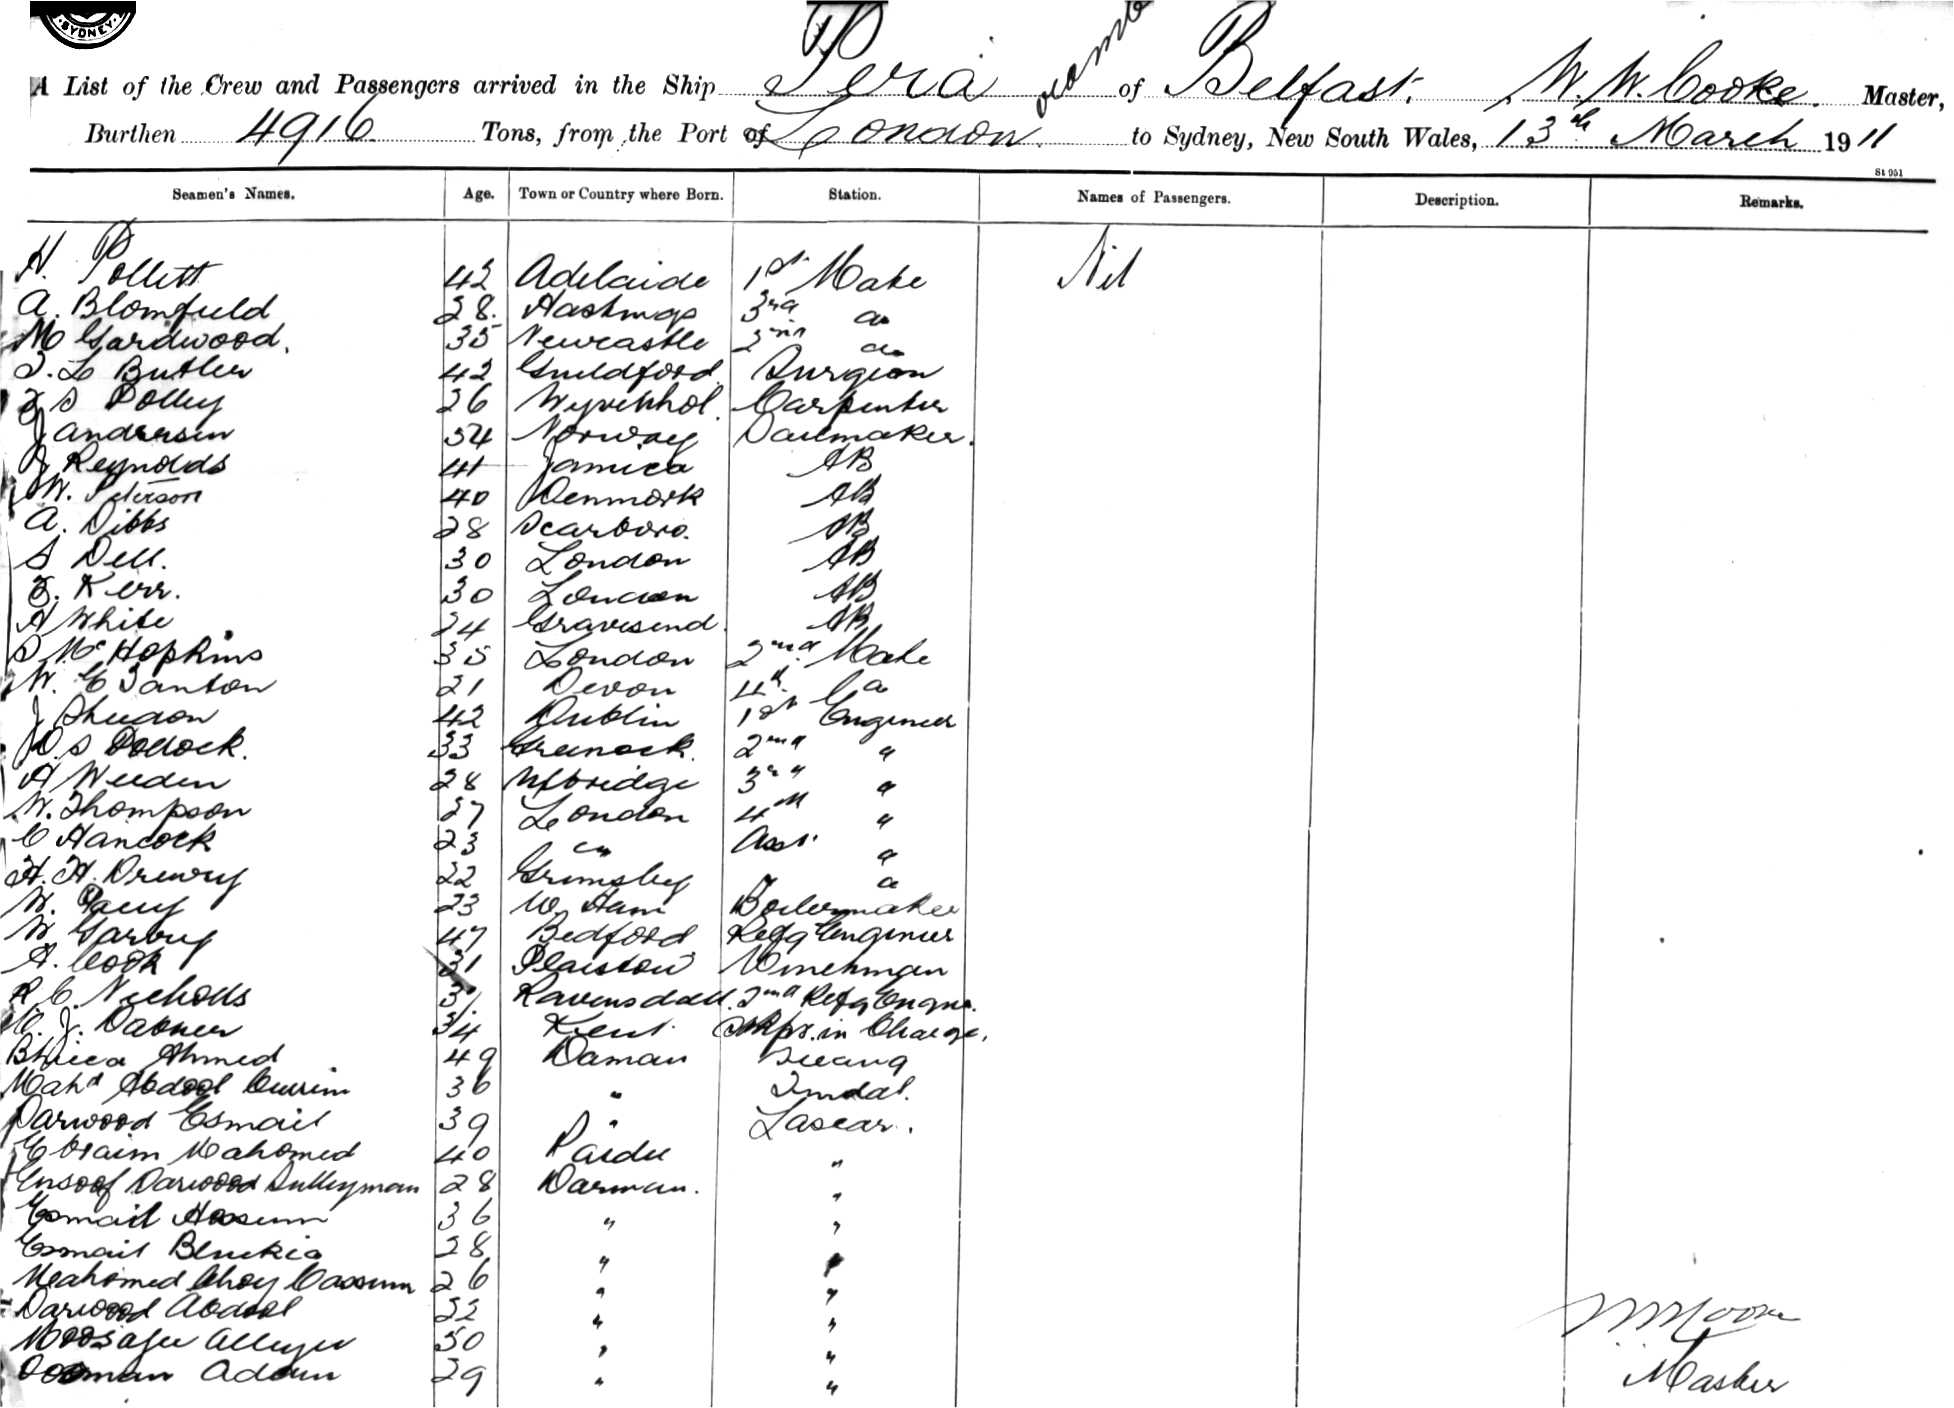 SYDNEY
A List of the Crew and Passengers arrived in the Ship Pera of Belfast, W. W. Cooke. Master,
Burthen 4916 Tons, from the Port of London to Sydney, New South Wales, 13th March 1911
St 951
Seamen's Names. Age. Town or Country where Born. Station. Names of Passengers. Description. Remarks.
H. Pollett 42 Adelaide 1st Mate Nil
A. Blomfield 28. Hastings 3rd do
M Gardwood. 35 Newcastle do
Butler 42 Guildford Surgeon
Polley 26 Carpenter
J Andersen 54 Norway Sailmaker.
J Reynolds 41 Jamica AB
W. Peterson 40 Denmark AB
A. Dibbs 28 Scarboro. AB
S Dell. 30 London AB
Kerr. 30 London AB
A White 24 Gravesend AB
Hopkins 35 London 2nd Mate
W. C Santon 21 Devon 4th do
J Sheedon 42 Dublin 1st Engineer
Pollock. 33 Greenock. 2nd "
A Weeden 28 Uxbridge 3rd "
W. Thompson 27 London 4th "
C Hancock 23 " Asst. "
H. H. Drewry 22 Grimsby "
W. Pacey 23 W. Ham Boilermaker
W Garbuy 47 Bedford Refg Engineer
A. Cook 31 Plaistow Winchman
R C. Nicholls 31 2nd Refg Engnr.
J. Dabner 34 Kent in Charge,
Ahmed 49 Daman Serang
Mahd Abdool Currim 36 " Tindal.
Darwood Esmail 39 " Lascar.
Ebraim Mahomed 40 "
Eusoof Darwood Sulleyman 28 Darman. "
Esmail Hossein 36 " "
Esmail 28 " "
Mahomed Choy Cassum 26 " "
Darwood Abdool 22 " "
Alleyer 50 " "
Adam 29 " "
W W Cooke
Master